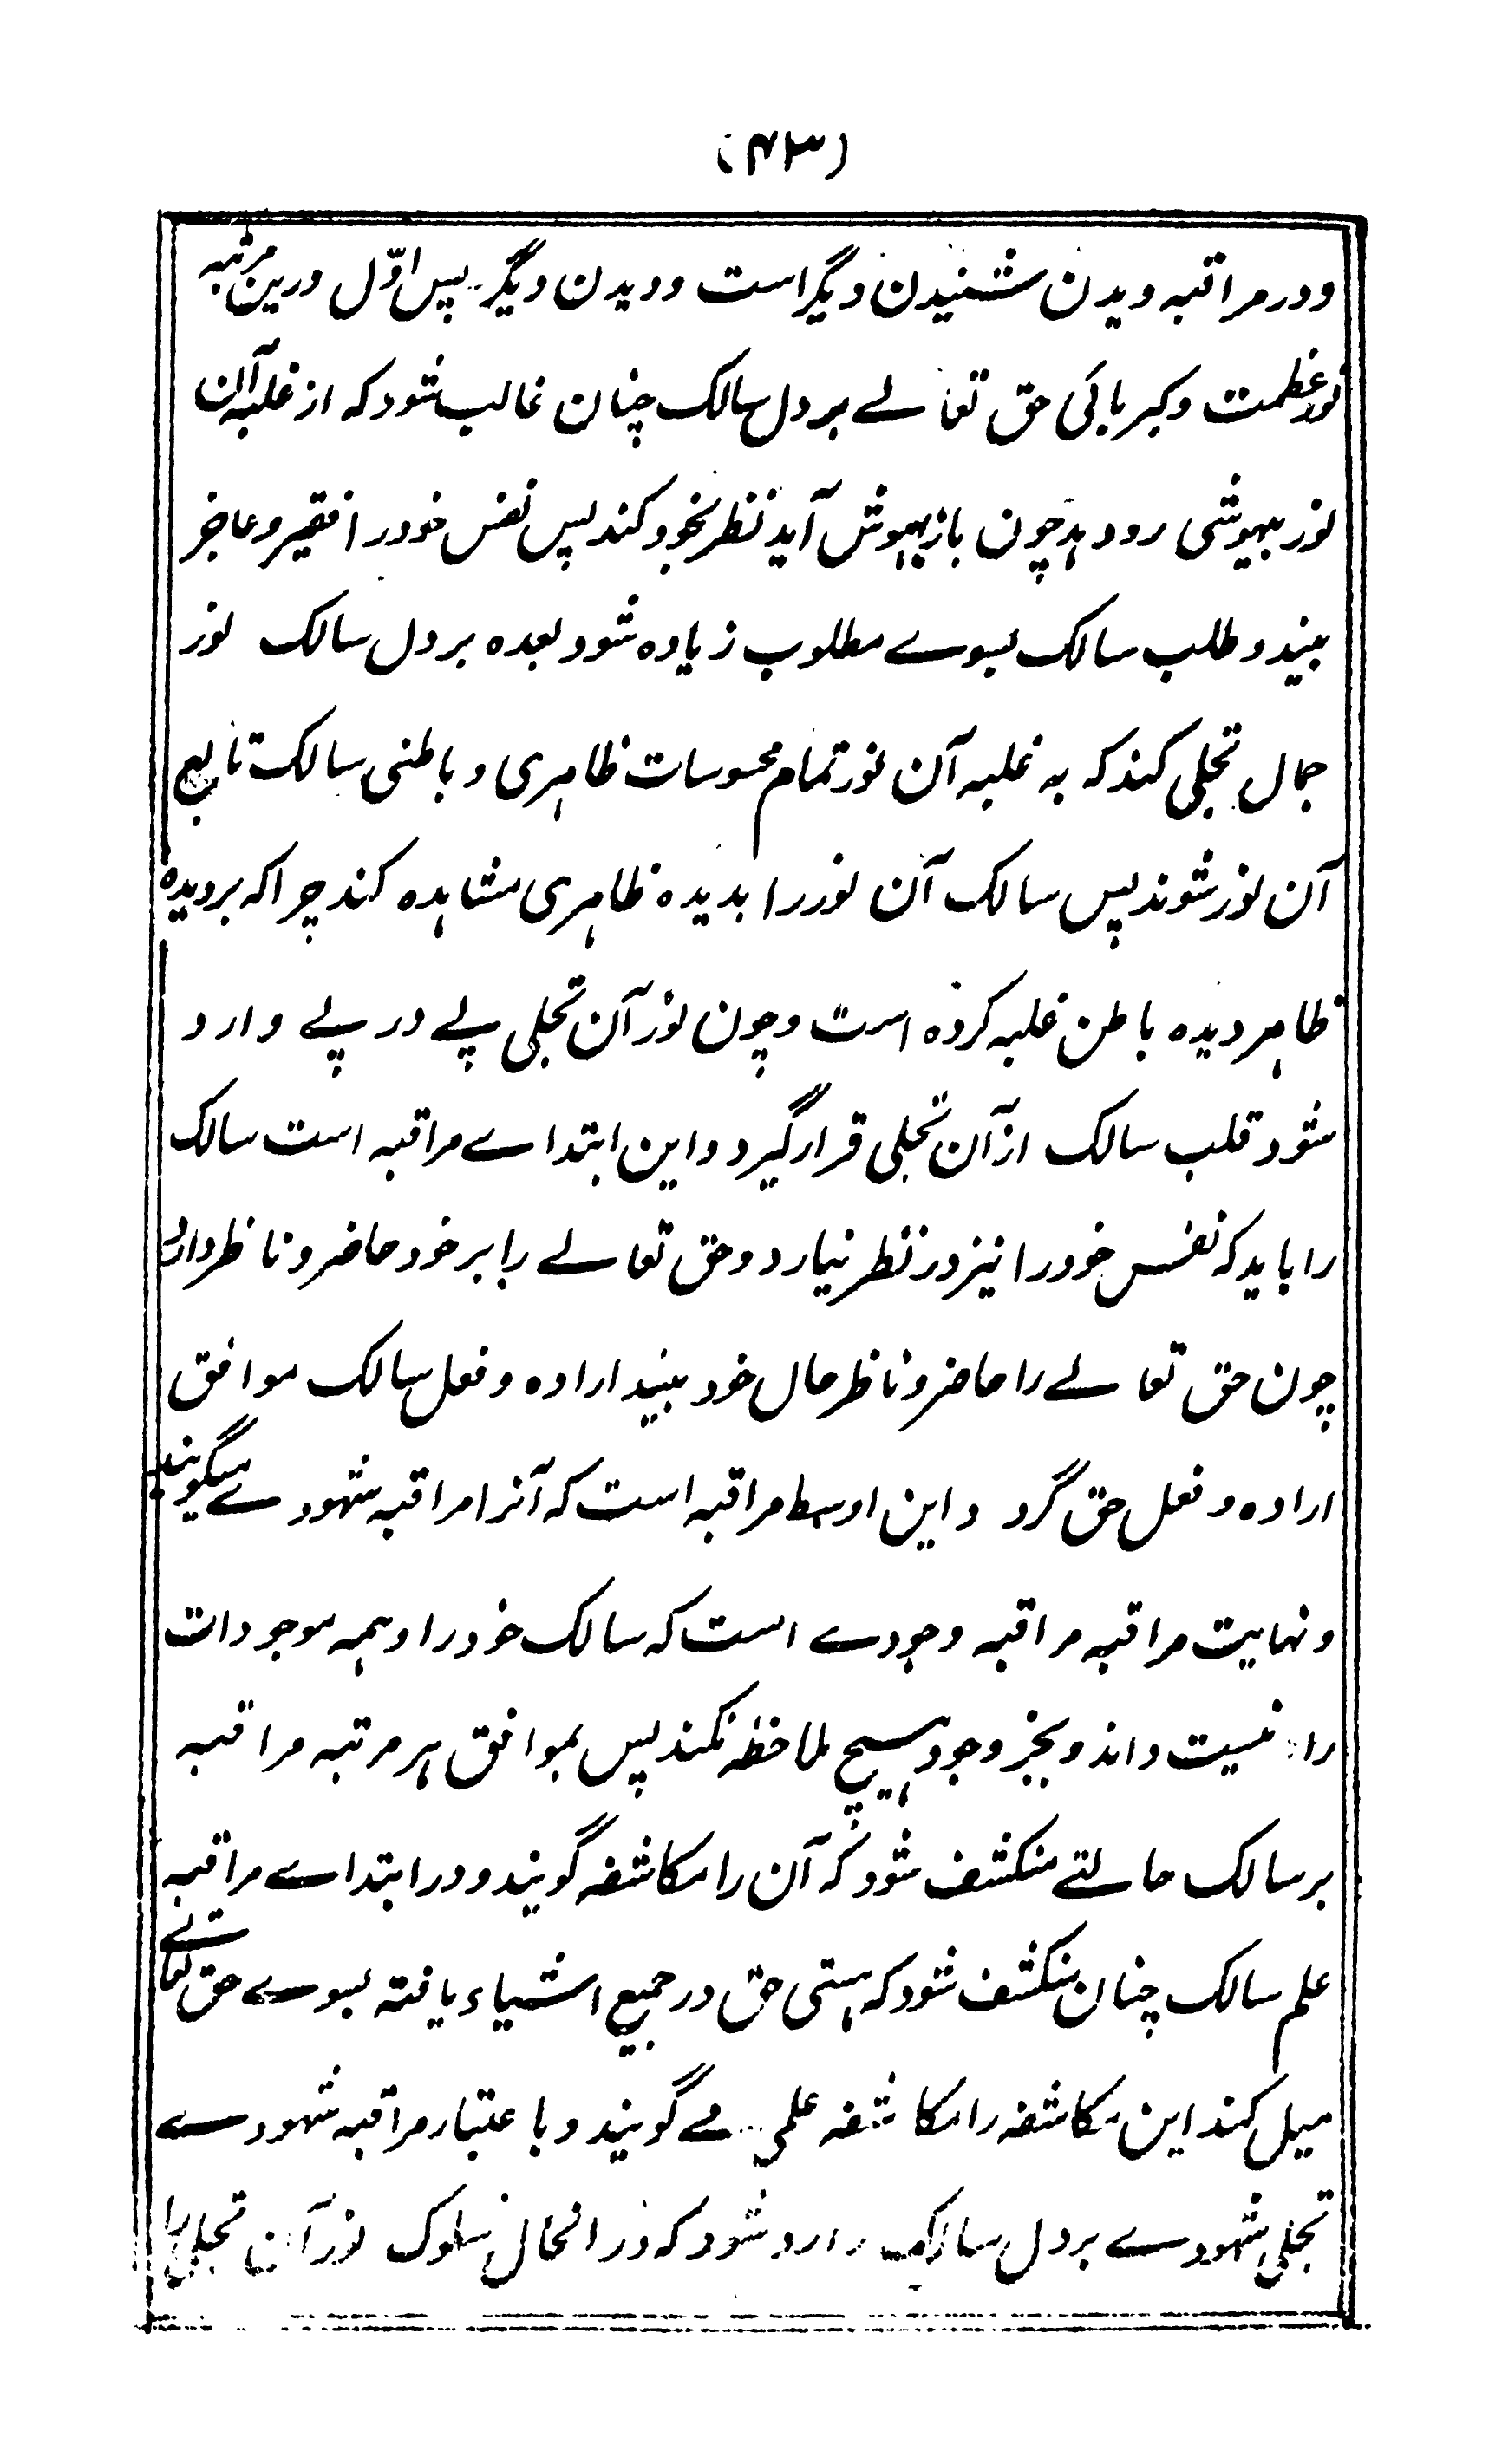 (۴۳)
و در مراقبه دیدن شنیدن دیگر است و دیدن دیگر پس اوّل درین مرتبه
نور عظمت و کبریائی حق تعالے بر دل سالک چنان غالب شود که از غلبه آن
نور بیهوشی رو دهد چون باز بهوش آید نظر بخود کند پس نفس خود را فقیر و عاجز
بیند و طلب سالک بسوے مطلوب زیاده شود بعده بر دل سالک نور
جمال تجلی کند که به غلبه آن نور تمام محسوسات ظاهری و باطنی سالک تابع
آن نور شوند پس سالک آن نور را بدیده ظاهری مشاهده کند چرا که بر دیده
ظاهر دیده باطن غلبه کرده است و چون نور آن تجلی پے در پے وارد
شود قلب سالک از آن تجلی قرار گیرد و این ابتداے مراقبه است سالک
را باید که نفس خود را نیز در نظر نیارد و حق تعالے را بر خود حاضر و ناظر داند
چون حق تعالے را حاضر و ناظر حال خود بیند اراده و فعل سالک موافق
اراده و فعل حق گردد و این اوسط مراقبه است که آنرا مراقبه شهودے میگویند
و نهایت مراقبه مراقبه وجودے است که سالک خود را و همه موجودات
را نیست داند و بجز وجود هیچ ملاحظه نکند پس بموافق هر مرتبه مراقبه
بر سالک حالتے منکشف شود که آن را مکاشفه گویند و در ابتداے مراقبه
علم سالک چنان منکشف شود که هستی حق در جمیع اشیاء یافته بسوے حق تعالے
میل کند این مکاشفه را مکاشفه علمی مے گویند و باعتبار مراقبه شهودے
تجلی شهودے بر دل سالک وارد شود که در الحال سلوک نور آن تجلی را